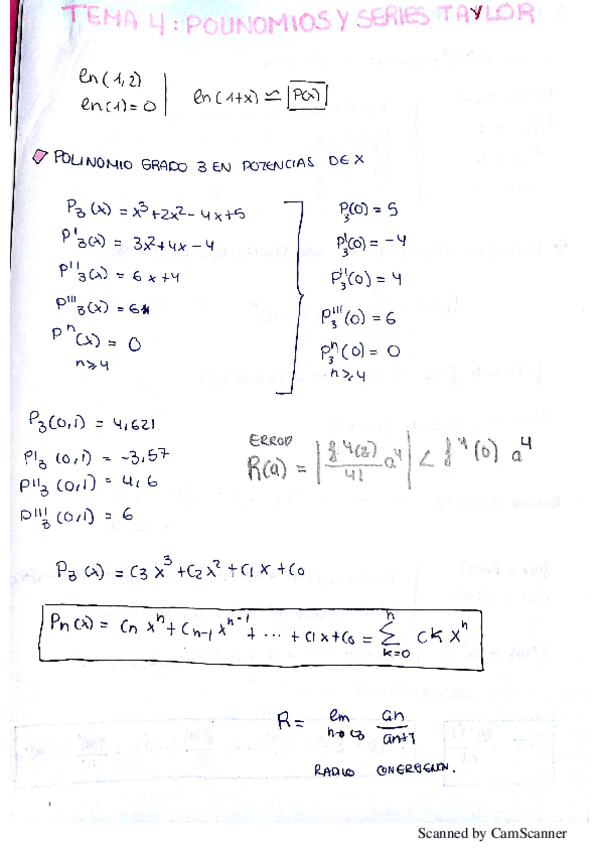 TEMA 4: POLINOMIOS Y SERIES TAYLOR
ln(1,2)
ln(1)=0
ln(1+x) ≃ P(x)
POLINOMIO GRADO 3 EN POTENCIAS DE X
P₃(x) = x³+2x²-4x+5
P'₃(x) = 3x²+4x-4
P''₃(x) = 6x+4
P'''₃(x) = 6
Pⁿ(x) = 0
n≥4
P₃(0) = 5
P₃'(0) = -4
P₃''(0) = 4
P₃'''(0) = 6
P₃ⁿ(0) = 0
n≥4
P₃(0,1) = 4,621
P'₃(0,1) = -3,57
P''₃(0,1) = 4,6
P'''₃(0,1) = 6
ERROR
R(a) = |f⁴(z)/4! a⁴| < f⁴(0) a⁴
P₃(x) = C3 x³ + C2 x² + C1 x + C0
Pn(x) = Cn xⁿ + Cn-1 xⁿ⁻¹ + ... + C1x + C0 = Σ k=0 n Ck xⁿ
R = lim n→∞ an/an+1
RADIO CONVERGENCIA.
Scanned by CamScanner